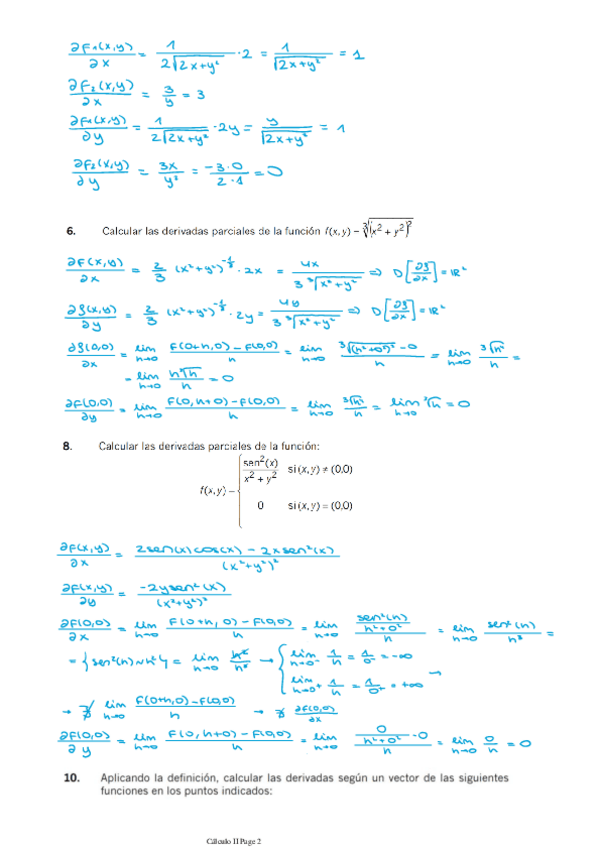 ∂F₁(x,y)/∂x = 1/(2√(2x+y²)) · 2 = 1/√(2x+y²) = 1
∂F₂(x,y)/∂x = 3/y = 3
∂F₁(x,y)/∂y = 1/(2√(2x+y²)) · 2y = y/√(2x+y²) = 1
∂F₂(x,y)/∂y = 3x/y² = (-3·0)/(2·1) = 0
6. Calcular las derivadas parciales de la función f(x,y) = ∛((x² + y²)²)
∂F(x,y)/∂x = 2/3 (x²+y²)^(-1/3) · 2x = 4x/(3 ∛(x²+y²)) ⇒ D[∂f/∂x] = ℝ²
∂f(x,y)/∂y = 2/3 (x²+y²)^(-1/3) · 2y = 4y/(3 ∛(x²+y²)) ⇒ D[∂f/∂x] = ℝ²
∂f(0,0)/∂x = lim h→0 (F(0+h,0) - F(0,0))/h = lim h→0 (∛((h²+0²)²) - 0)/h = lim h→0 ∛h⁴/h =
= lim h→0 h∛h/h = 0
∂F(0,0)/∂y = lim h→0 (F(0,h+0) - F(0,0))/h = lim h→0 ∛h⁴/h = lim h→0 ∛h = 0
8. Calcular las derivadas parciales de la función:
f(x,y) = { sen²(x)/(x² + y²) si (x,y) ≠ (0,0)
0 si (x,y) = (0,0)
∂F(x,y)/∂x = (2sen(x)cos(x) - 2x sen²(x))/(x²+y²)²
∂F(x,y)/∂y = -2y sen²(x)/(x²+y²)²
∂F(0,0)/∂x = lim h→0 (F(0+h,0) - F(0,0))/h = lim h→0 (sen²(h)/(h²+0²))/h = lim h→0 sen²(h)/h³ =
= {sen²(h)~h²} = lim h→0 h²/h³ → { lim h→0⁻ 1/h = 1/0⁻ = -∞
lim h→0⁺ 1/h = 1/0⁺ = +∞ →
→ ∄ lim h→0 (F(0+h,0) - F(0,0))/h → ∄ ∂F(0,0)/∂x
∂F(0,0)/∂y = lim h→0 (F(0,h+0) - F(0,0))/h = lim h→0 (0/(h²+0²) - 0)/h = lim h→0 0/h = 0
10. Aplicando la definición, calcular las derivadas según un vector de las siguientes
funciones en los puntos indicados:
Cálculo II Page 2